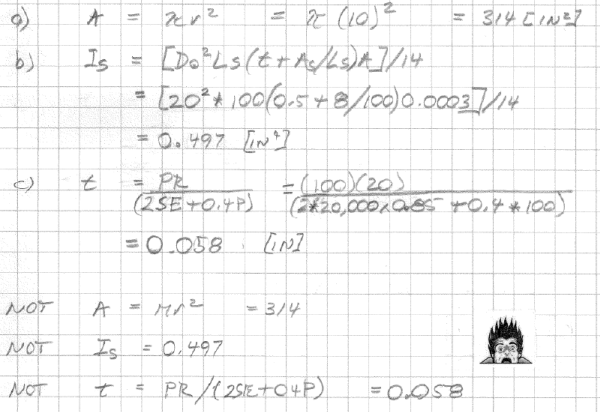 a) A = πr² = π(10)² = 314 [IN²]
b) Is = [Do²Ls(t+As/Ls)A]/14
= [20²*100(0.5+8/100)0.0003]/14
= 0.497 [IN⁴]
c) t = PR = (100)(20)
(2SE+0.4P) (2*20,000*0.85+0.4*100)
= 0.058 [IN]
NOT A = πr² = 314
NOT Is = 0.497
NOT t = PR/(2SE+04P) = 0.058